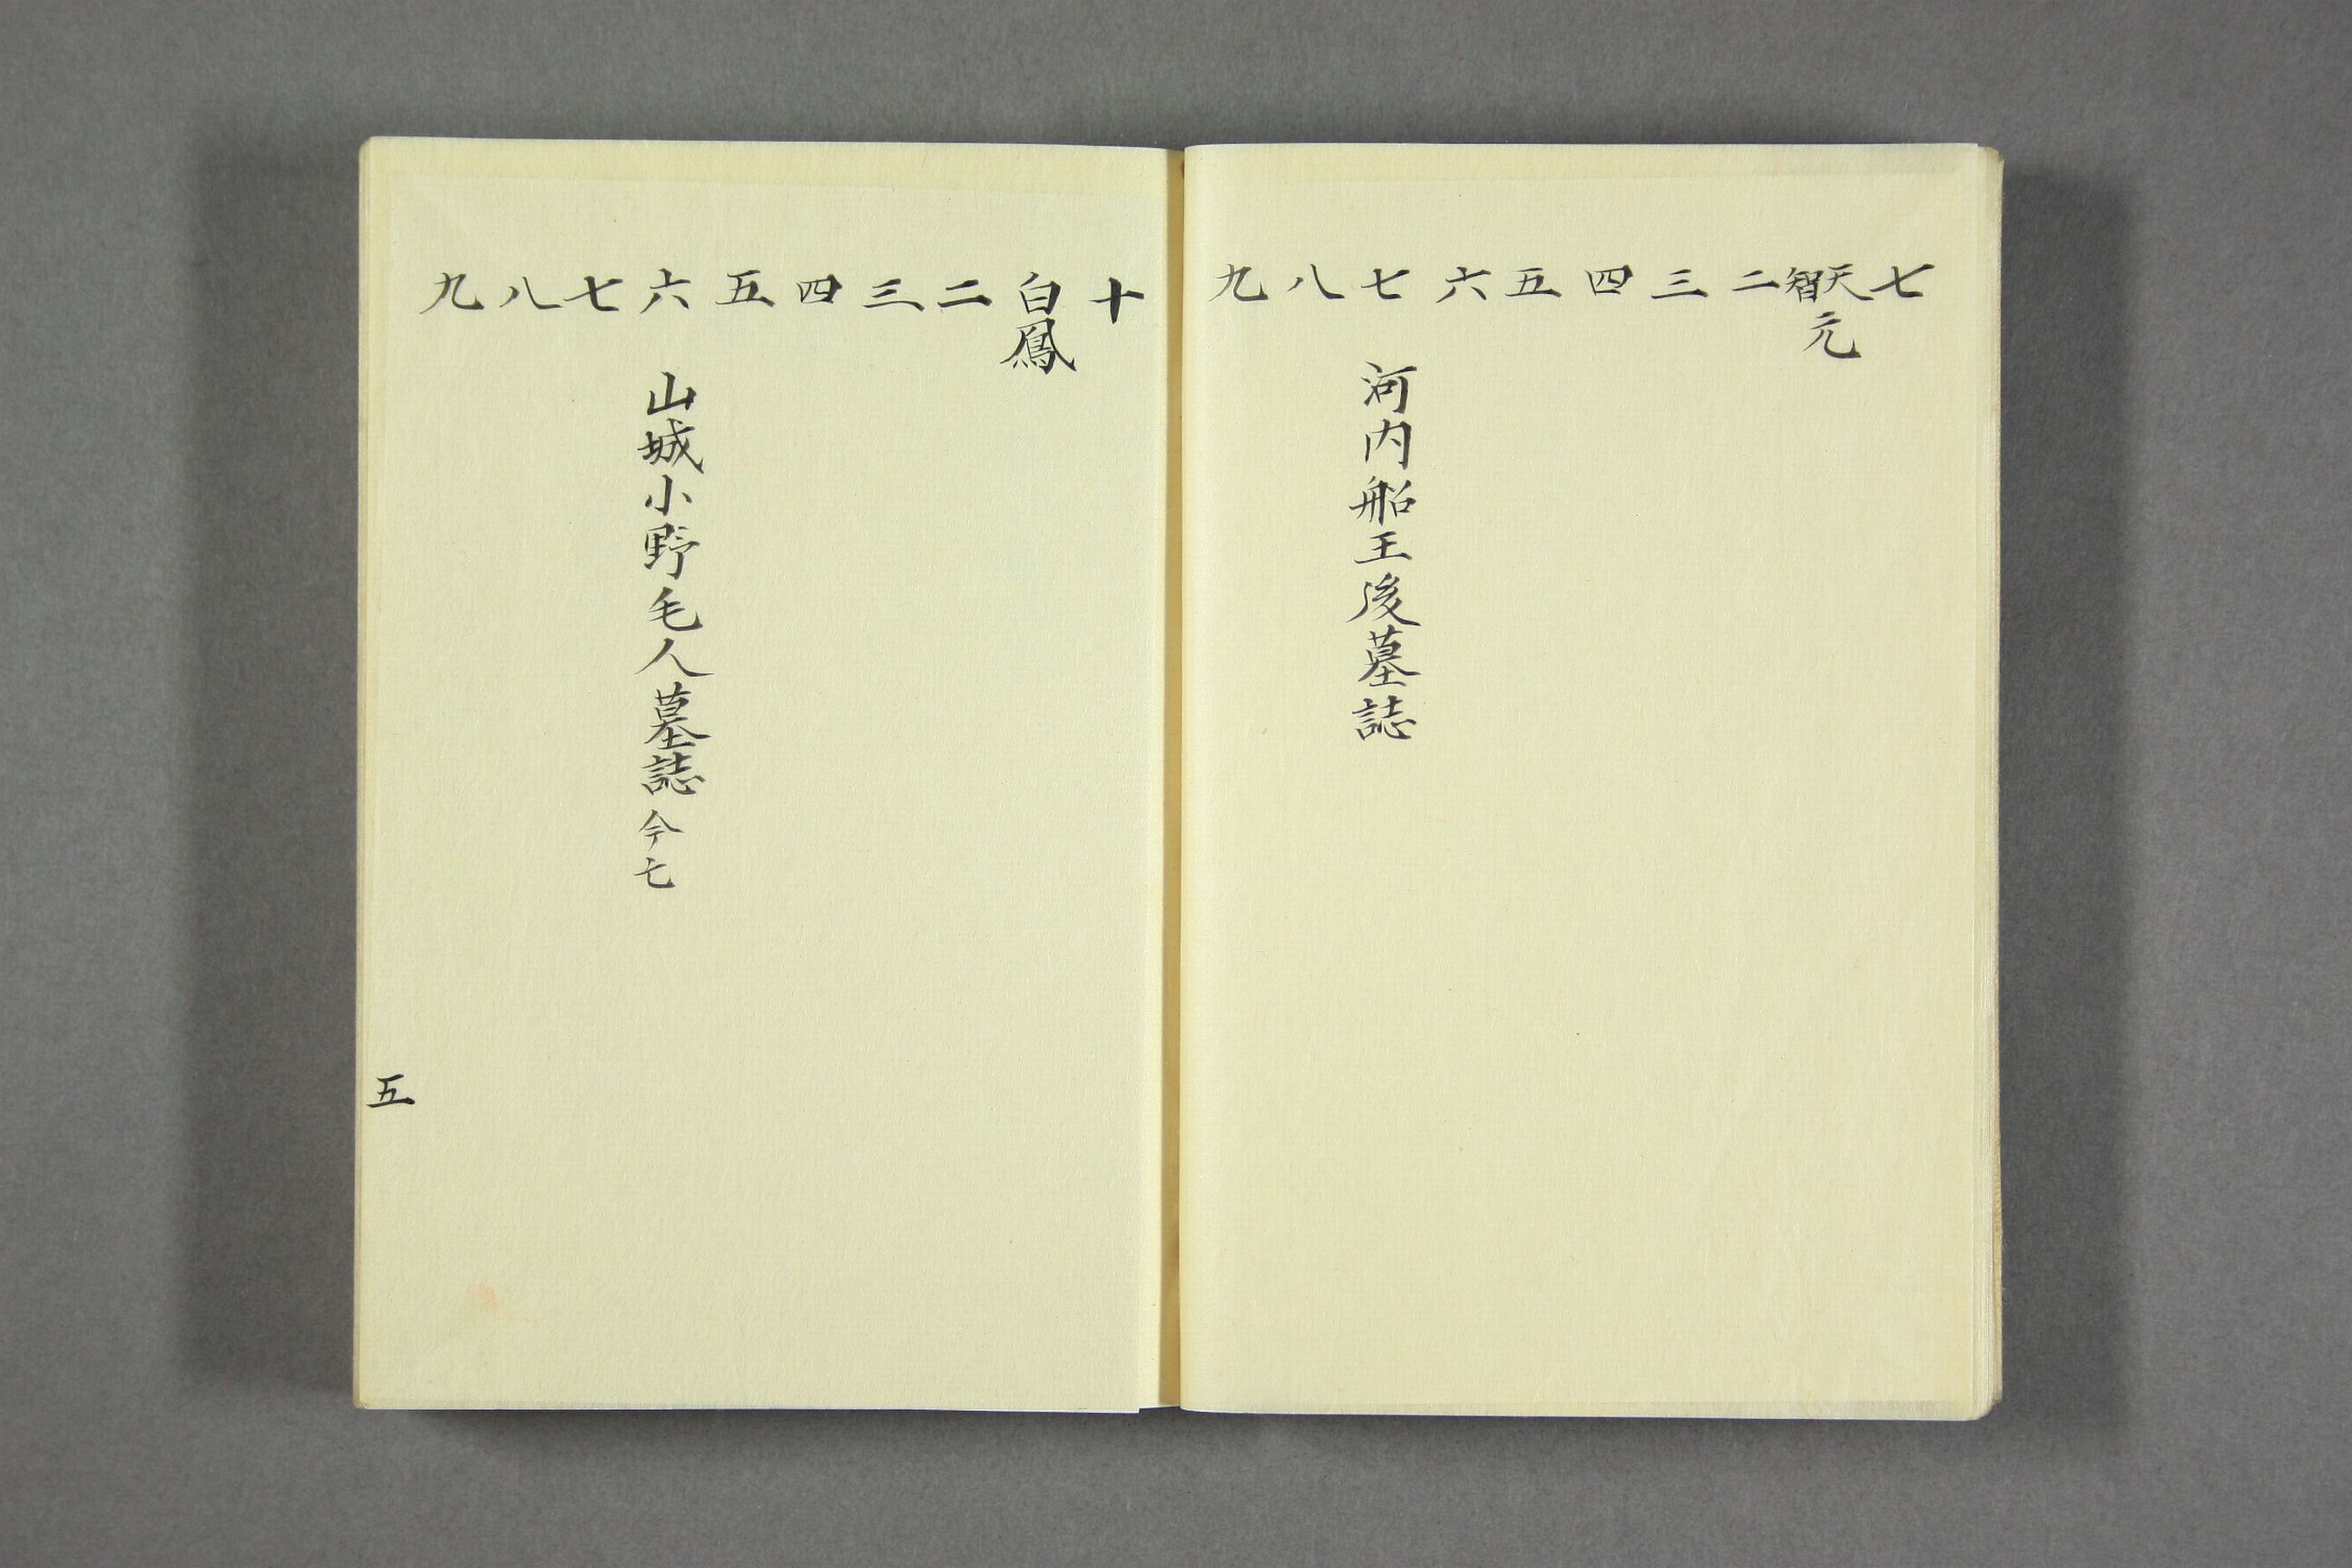 七
天智元
二
三
四
五
六
七 河内船王後墓誌
八
九
十
白鳳
二
三
四
五
六 山城小野毛人墓誌 今七
七
八
九
五